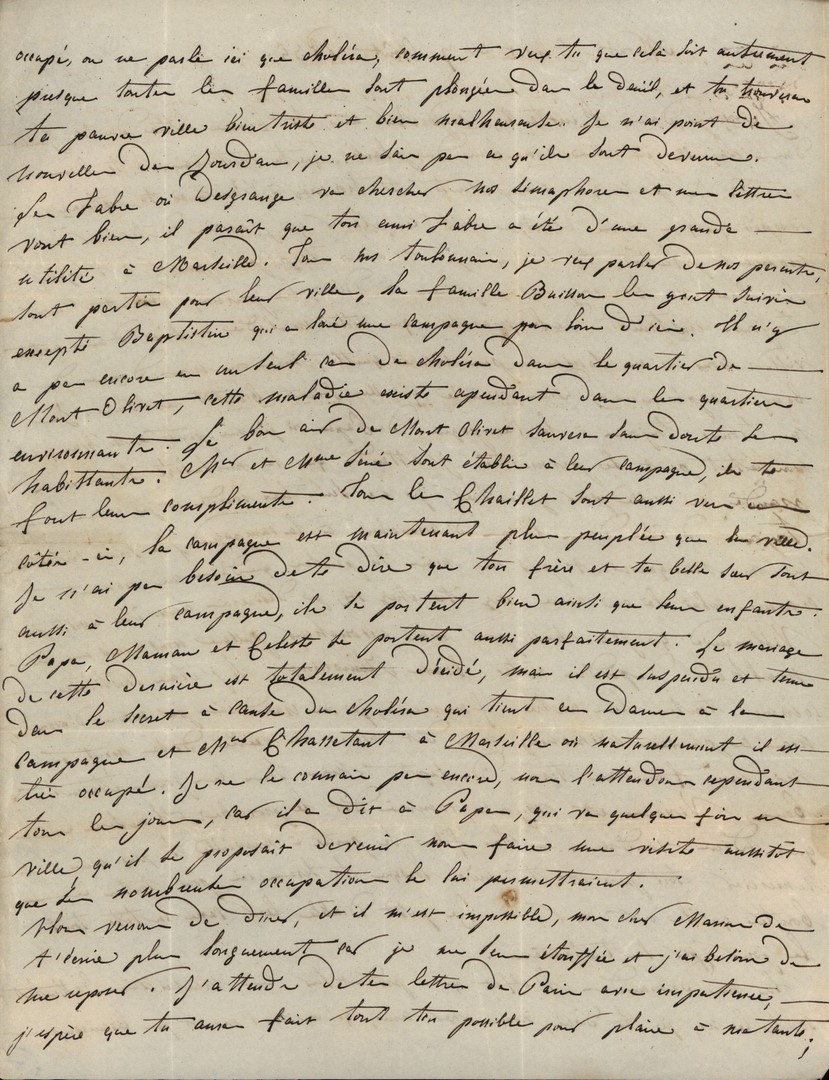 occupé, on ne parle ici que choléra, comment veux tu que cela soit autrement
presque toutes les familles sont plongées dans le deuil, et tu trouveras
ta pauvre ville bien triste et bien malheureuse. Je n'ai point de
nouvelles des Jourdan, je ne sais pas ce qu'ils sont devenus.
Les Fabre où Desgrange va chercher nos sémaphores et mes lettres
vont bien, il paraît que ton ami Fabre a été d'une grande
utilité à Marseille. Tous nos toulonnais, je veux parler de nos parents,
sont partis pour leur ville, la famille Buisson les y ont suivis
excepté Baptistin qui a loué une campagne pas loin d'ici. Il n'y
a pas encore eu un seul cas de choléra dans le quartier de
Mont Olivet, cette maladie existe cependant dans les quartiers
environnants. Le bon air de Mont Olivet sauvera sans doute ses
habittants. Mr et Mme Séné sont établis à leur campagne, ils te
font leurs compliments. Tous les Chaillet sont aussi vers ces
côtés-ci, la campagne est maintenant plus peuplée que la ville.
Je n'ai pas besoin de te dire que ton frère et ta belle sœur sont
aussi à leur campagne, ils se portent bien ainsi que leurs enfants.
Papa, Maman et Celeste se portent aussi parfaitement. Le mariage
de cette dernière est totalement décidé, mais il est suspendu et tenu
dans le secret à cause du choléra qui tient ces Dames à la
campagne et Mr Chassetant à Marseille où naturellement il est
très occupé. Je ne le connais pas encore, nous l'attendons cependant
tous les jours, car il a dit à Papa, qui va quelque fois en
ville, qu'il se proposait de venir nous faire une visite aussitôt
que ses nombreuses occupations le lui permettraient.
Nous venons de diner, et il m'est impossible, mon cher Masson de
t'écrire plus longuement car je me sens étouffée et j'ai besoin de
me reposer. J'attends de tes lettres de Paris avec impatience,
j'espère que tu auras fait tout ton possible pour plaire à ma tante;